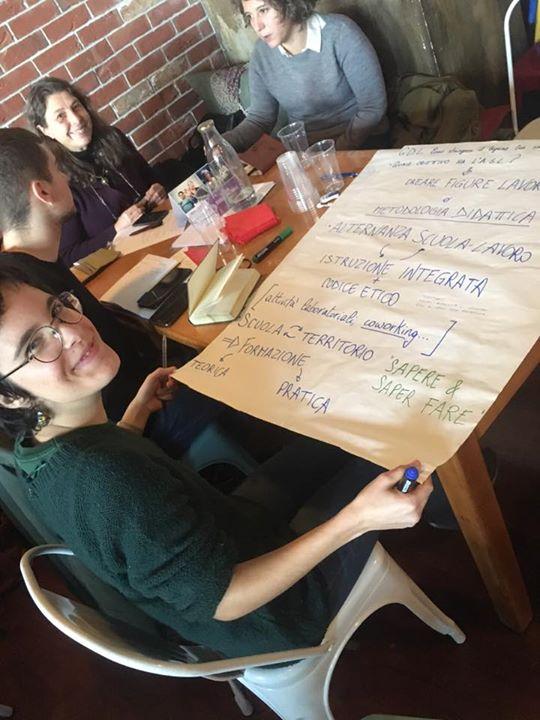 CREARE FIGURE LAVOR
METODOLOGIA DIDATTICA
ALTERNANZA SCUOLA-LAVORO
ISTRUZIONE INTEGRATA
CODICE ETICO
[attività laboratoriali, coworking...]
SCUOLA TERRITORIO
FORMAZIONE
TEORICA
PRATICA
"SAPERE &
SAPER FARE"